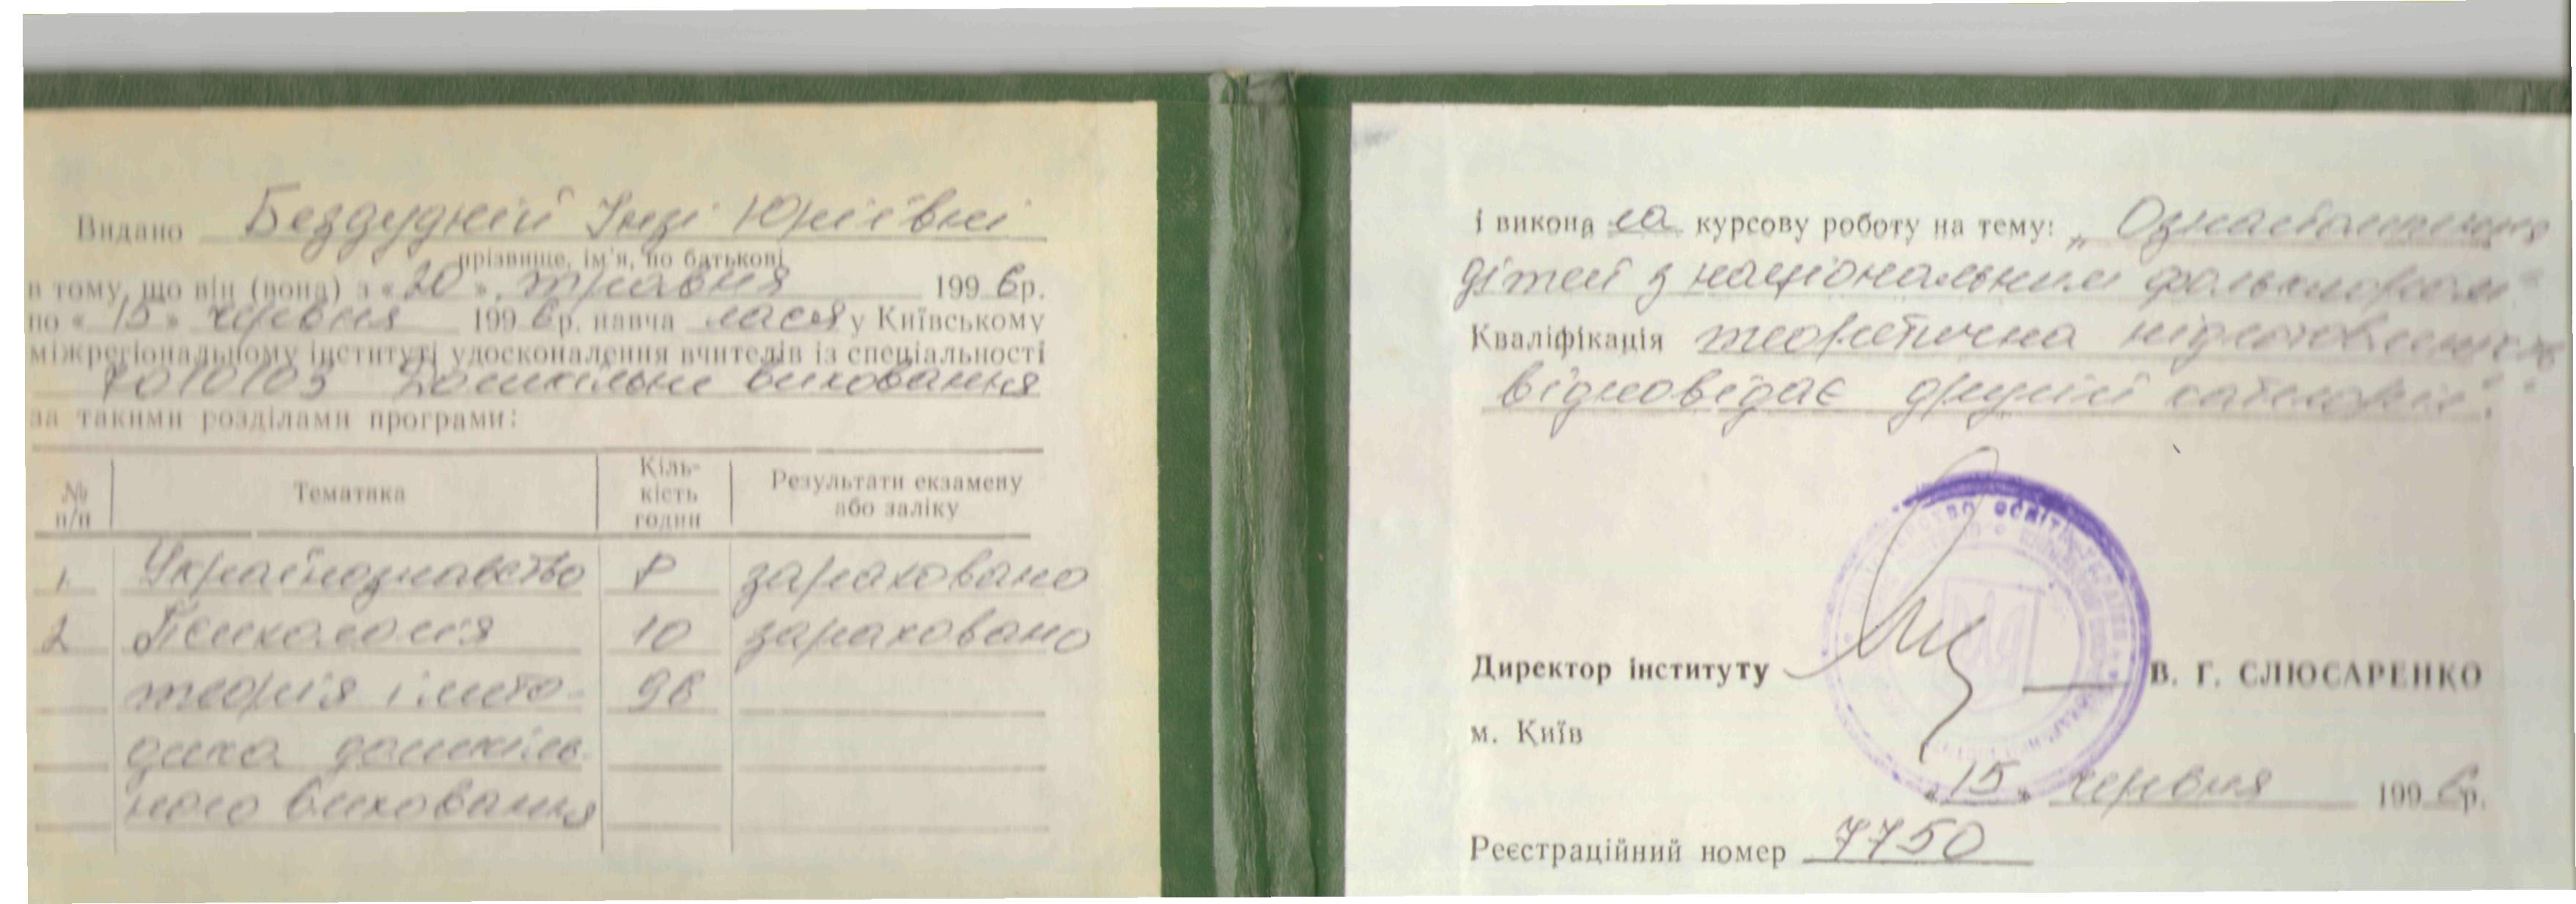 Видано Бездудній Інзі Юріївні
прізвище, ім'я, по батькові
в тому, що він (вона) з «20» травня 1996р.
по «15» червня 1996р. навча лася у Київському
міжрегіональному інституті удосконалення вчителів із спеціальності
7010103 дошкільне виховання
за такими розділами програми:
№ п/п Тематика Кіль-кість годин Результати екзамену або заліку
1. Українознавство 8 зараховано
2 Психологія 10 зараховано
теорія і мето- 96
дика дошкіль-
ного виховання
і викона ла курсову роботу на тему: „Ознайомлення
дітей з національним фольклором"
Кваліфікація теоретична підготовленість
відповідає другій категорії".
Директор інституту В. Г. СЛЮСАРЕНКО
м. Київ
«15» червня 1996р.
Реєстраційний номер 7750